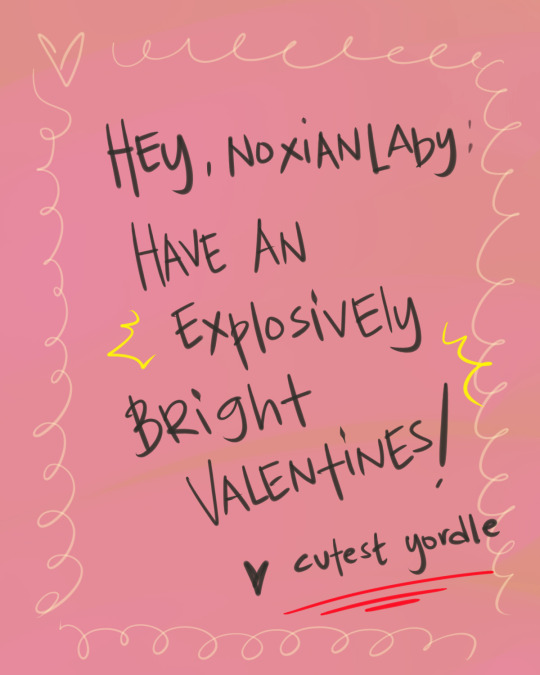 HEY, NOXIANLADY:
HAVE AN
EXPLOSIVELY
BRIGHT
VALENTINES!
♥ cutest yordle